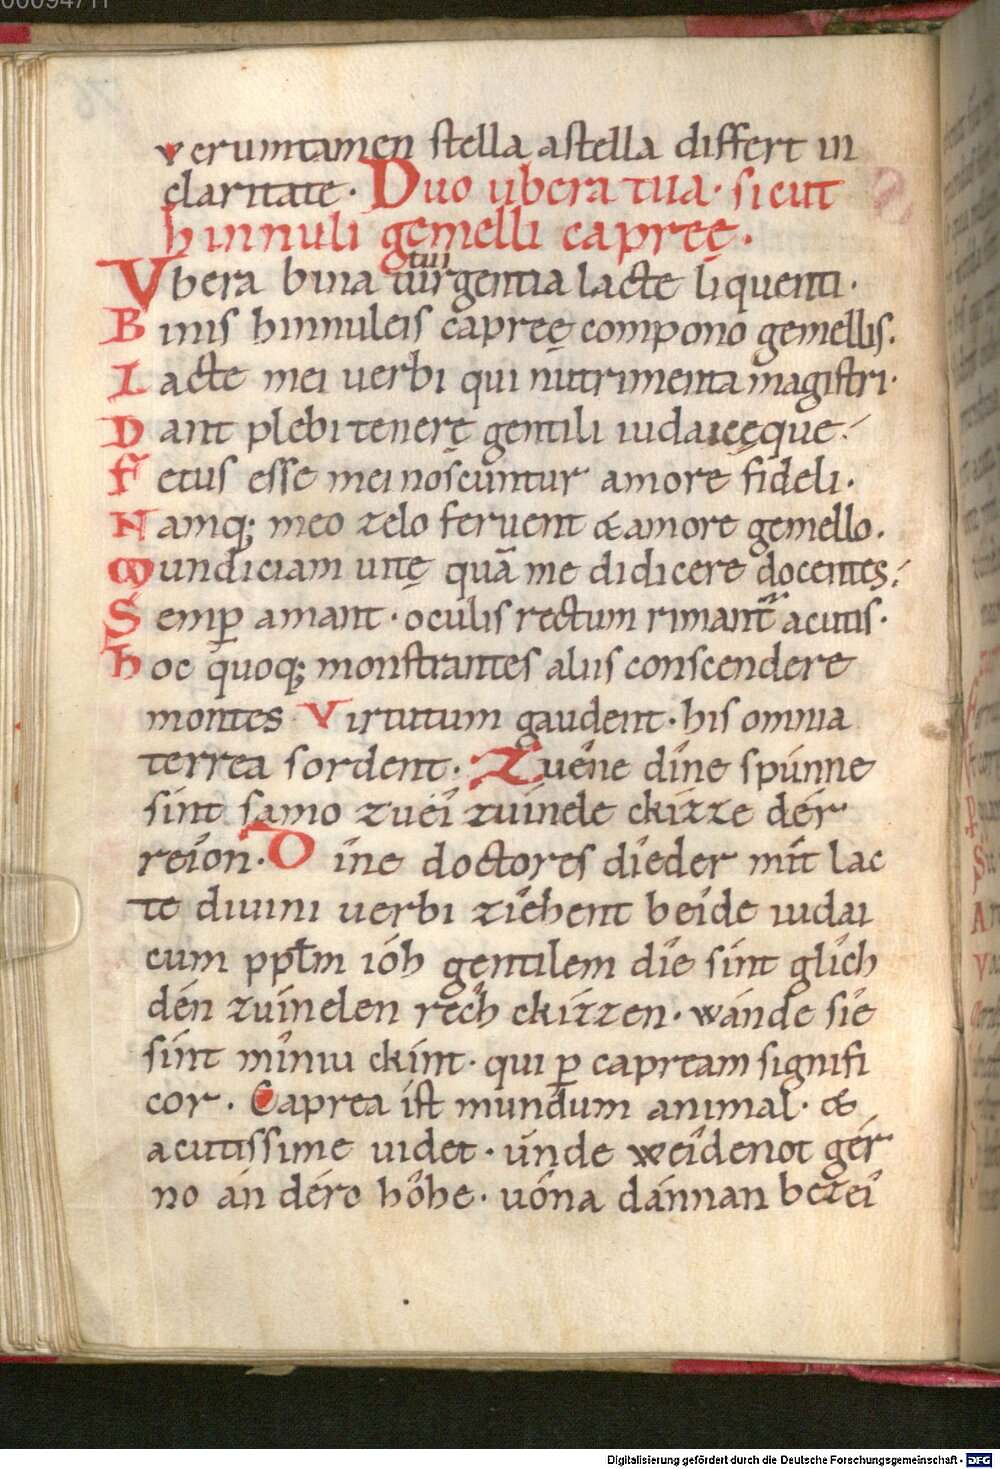 00094711
verumtamen stella a stella differt in
claritate. Duo ubera tua. sicut
hinnuli gemelli capreę.
tui
Vbera bina turgentia lacte liquenti.
Binis hinnuleis capreę compono gemellis.
Lacte mei uerbi qui nutrimenta magistri.
Dant plebi tenerę gentili iudaicęque.
Fetus esse mei noscuntur amore fideli.
Namq; meo zelo feruent & amore gemello.
Mundiciam uitę quā me didicere docentes.
Semꝑ amant. oculis rectum rimant acutis.
Hoc quoq; monstrantes aliis conscendere
montes Virtutum gaudent. his omnia
terrea sordent. Zuéne díne spúnne
sint samo zuéi zuínele ckizze dér
réion. Díne doctores díeder mít lac
te diuini uerbi ziéhent béide iudai
cum ppłm ióh gentilem díe sínt glích
dén zuínelen réch ckizzen. wánde síe
sínt míniu ckint. qui ꝑ capream signifi
cor. Caprea íst mundum animal. &
acutissime uidet. únde wéidenot gér
no án déro hóhe. uóna dánnan bezéi
Digitalisierung gefördert durch die Deutsche Forschungsgemeinschaft - DFG